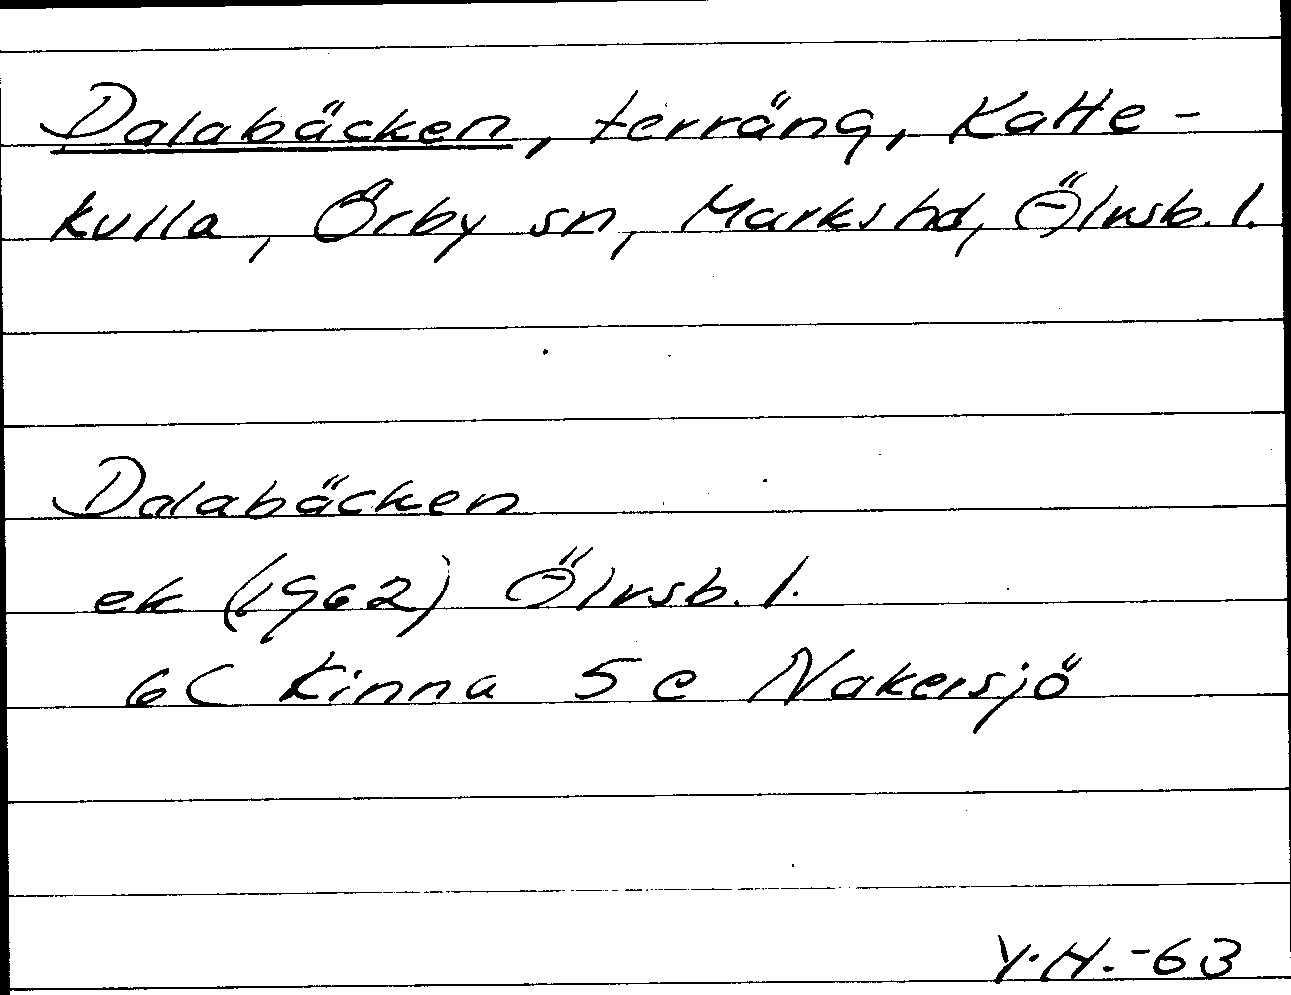 Dalabäcken, terräng, Katte-
kulla, Örby sn, Marks hd, Älvsb. l.
Dalabäcken
ek (1962) Älvsb. l.
6C Kinna 5e Nakersjö
Y.H.-63